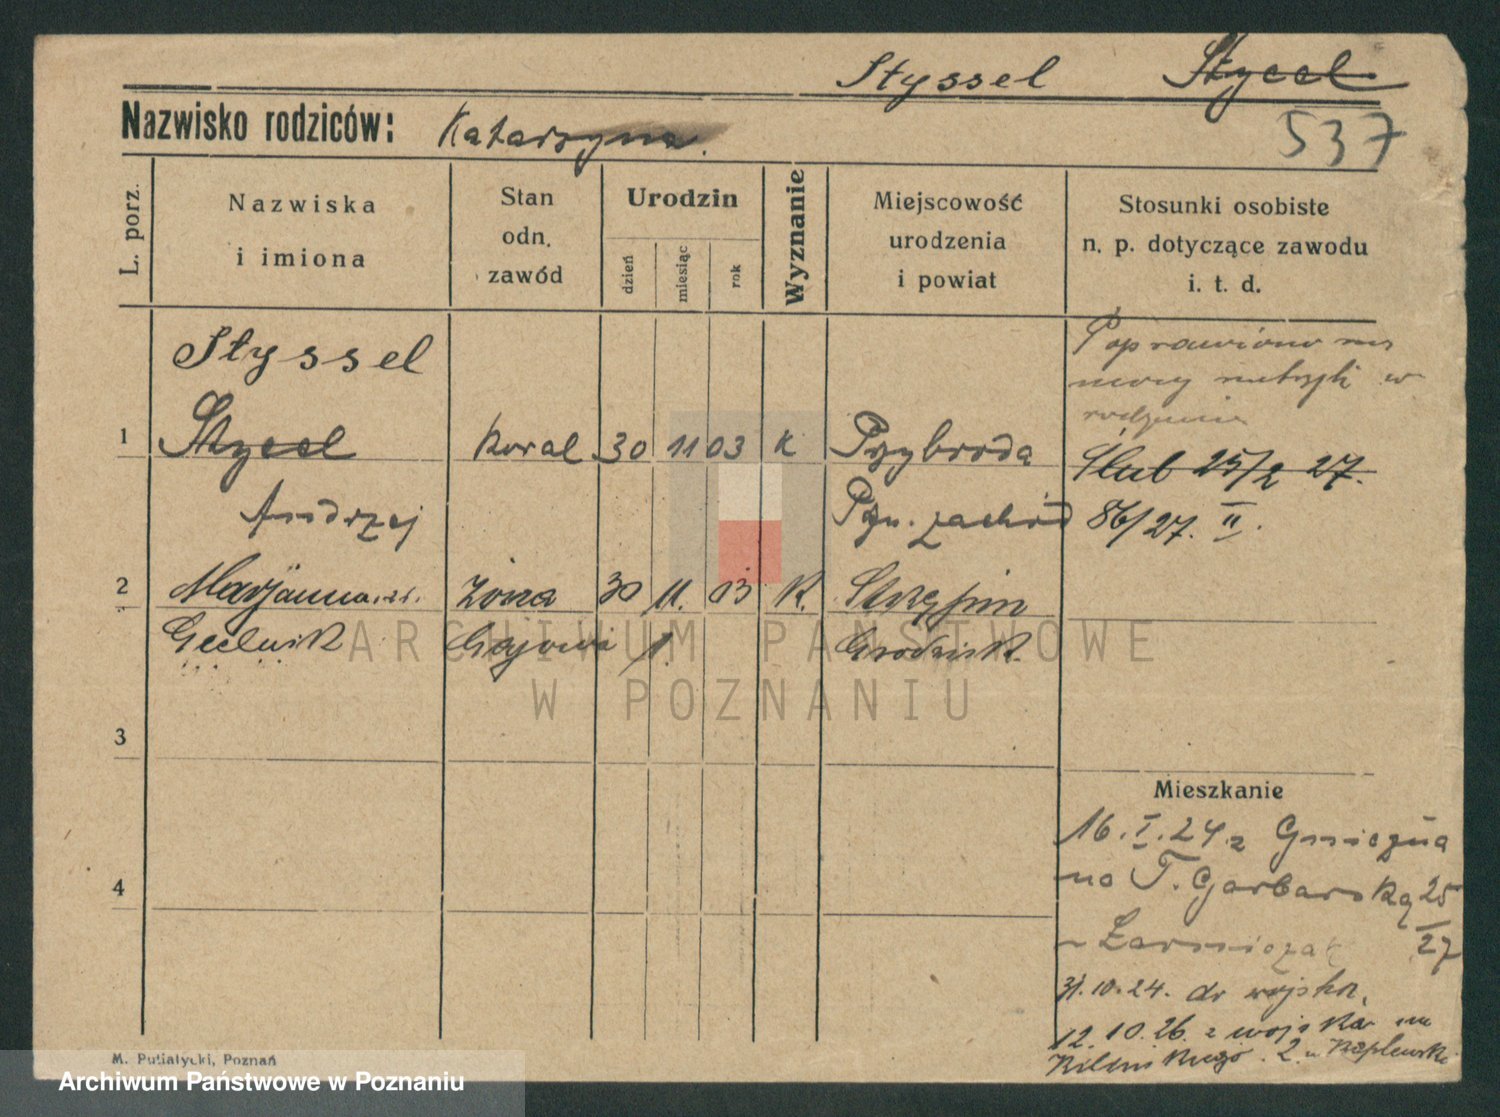 Styssel Stycel
Nazwisko rodziców: Katarzyna.
537
L. porz.
Nazwiska
i imiona
Stan
odn.
zawód
Urodzin
dzień
miesiąc
rok
Wyznanie
Miejscowość
urodzenia
i powiat
Stosunki osobiste
n. p. dotyczące zawodu
i. t. d.
Styssel
1 Stycel Kowal 30 11 03 K Przybroda
Andrzej Pzn. zachód
Poprawiono na
mocy metryki
Ślub 25/2 27.
86/27. II.
2 Marjanna żona 30 11. 03 K.
Grodzisk.
3
4
Mieszkanie
16.I.24. z Gniezna
na T. Garbarską 25
27
31.10.24. do wojska,
12.10.26. z wojska na
Kilińskiego 2.
M. Putiatycki, Poznań
ARCHIWUM PAŃSTWOWE
W POZNANIU
Archiwum Państwowe w Poznaniu